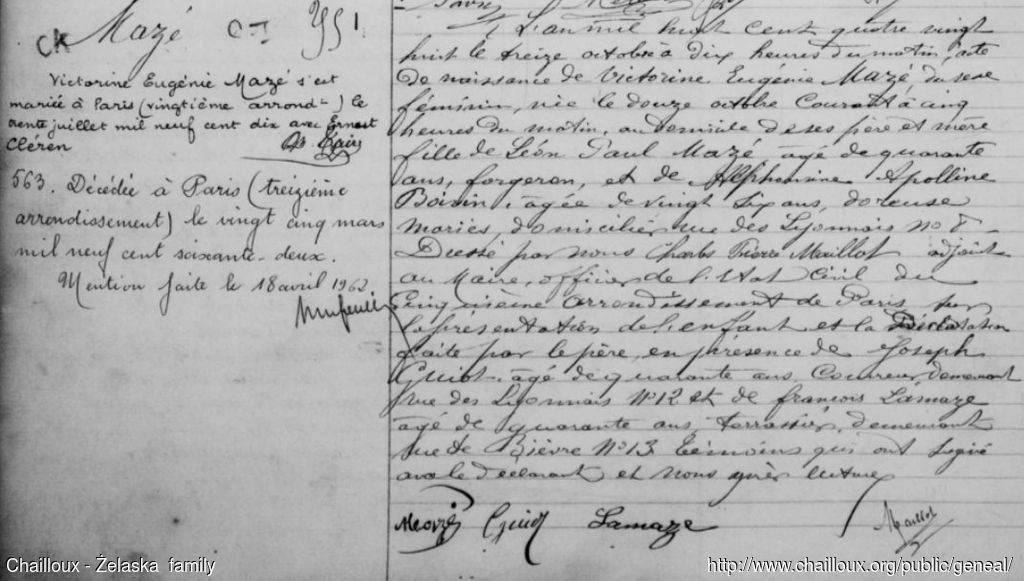 CK Mazé
Victorine Eugénie Mazé s'est
mariée à Paris (vingtième arrondt) le
trente juillet mil neuf cent dix avec Ernest
Cléren
563. Décédée à Paris (treizième
arrondissement) le vingt cinq mars
mil neuf cent soixante-deux.
Mention faite le 18 avril 1962.
L'an mil huit cent quatre vingt
huit le treize octobre à dix heures du matin, acte
de naissance de Victorine Eugenie Mazé, du sexe
féminin, née le douze octobre courant à cinq
heures du matin, au domicile de ses père et mère
fille de Léon Paul Mazé agé de quarante
ans, forgeron, et de Alphonsine Apolline
Boisin, agée de vingt six ans, doreuse
mariés, domiciliés rue des Lyonnais no 8 -
Dressé par nous Charles Pierre Maillot adjoint
au Maire, officier de l'Etat Civil du
Cinquième arrondissement de Paris sur
la présentation de l'enfant et la Déclaration
faite par le père, en présence de Joseph
Guiot, agé de quarante ans, Couvreur, demeurant
rue des Lyonnais No 12 et de françois Lamaze
agé de quarante ans, terrassier, demeurant
rue de Bièvre No 13 témoins qui ont signé
avec le déclarant et nous après lecture
Mazé Guiot Lamaze Maillot
Chailloux - Želaska family http://www.chailloux.org/public/geneal/